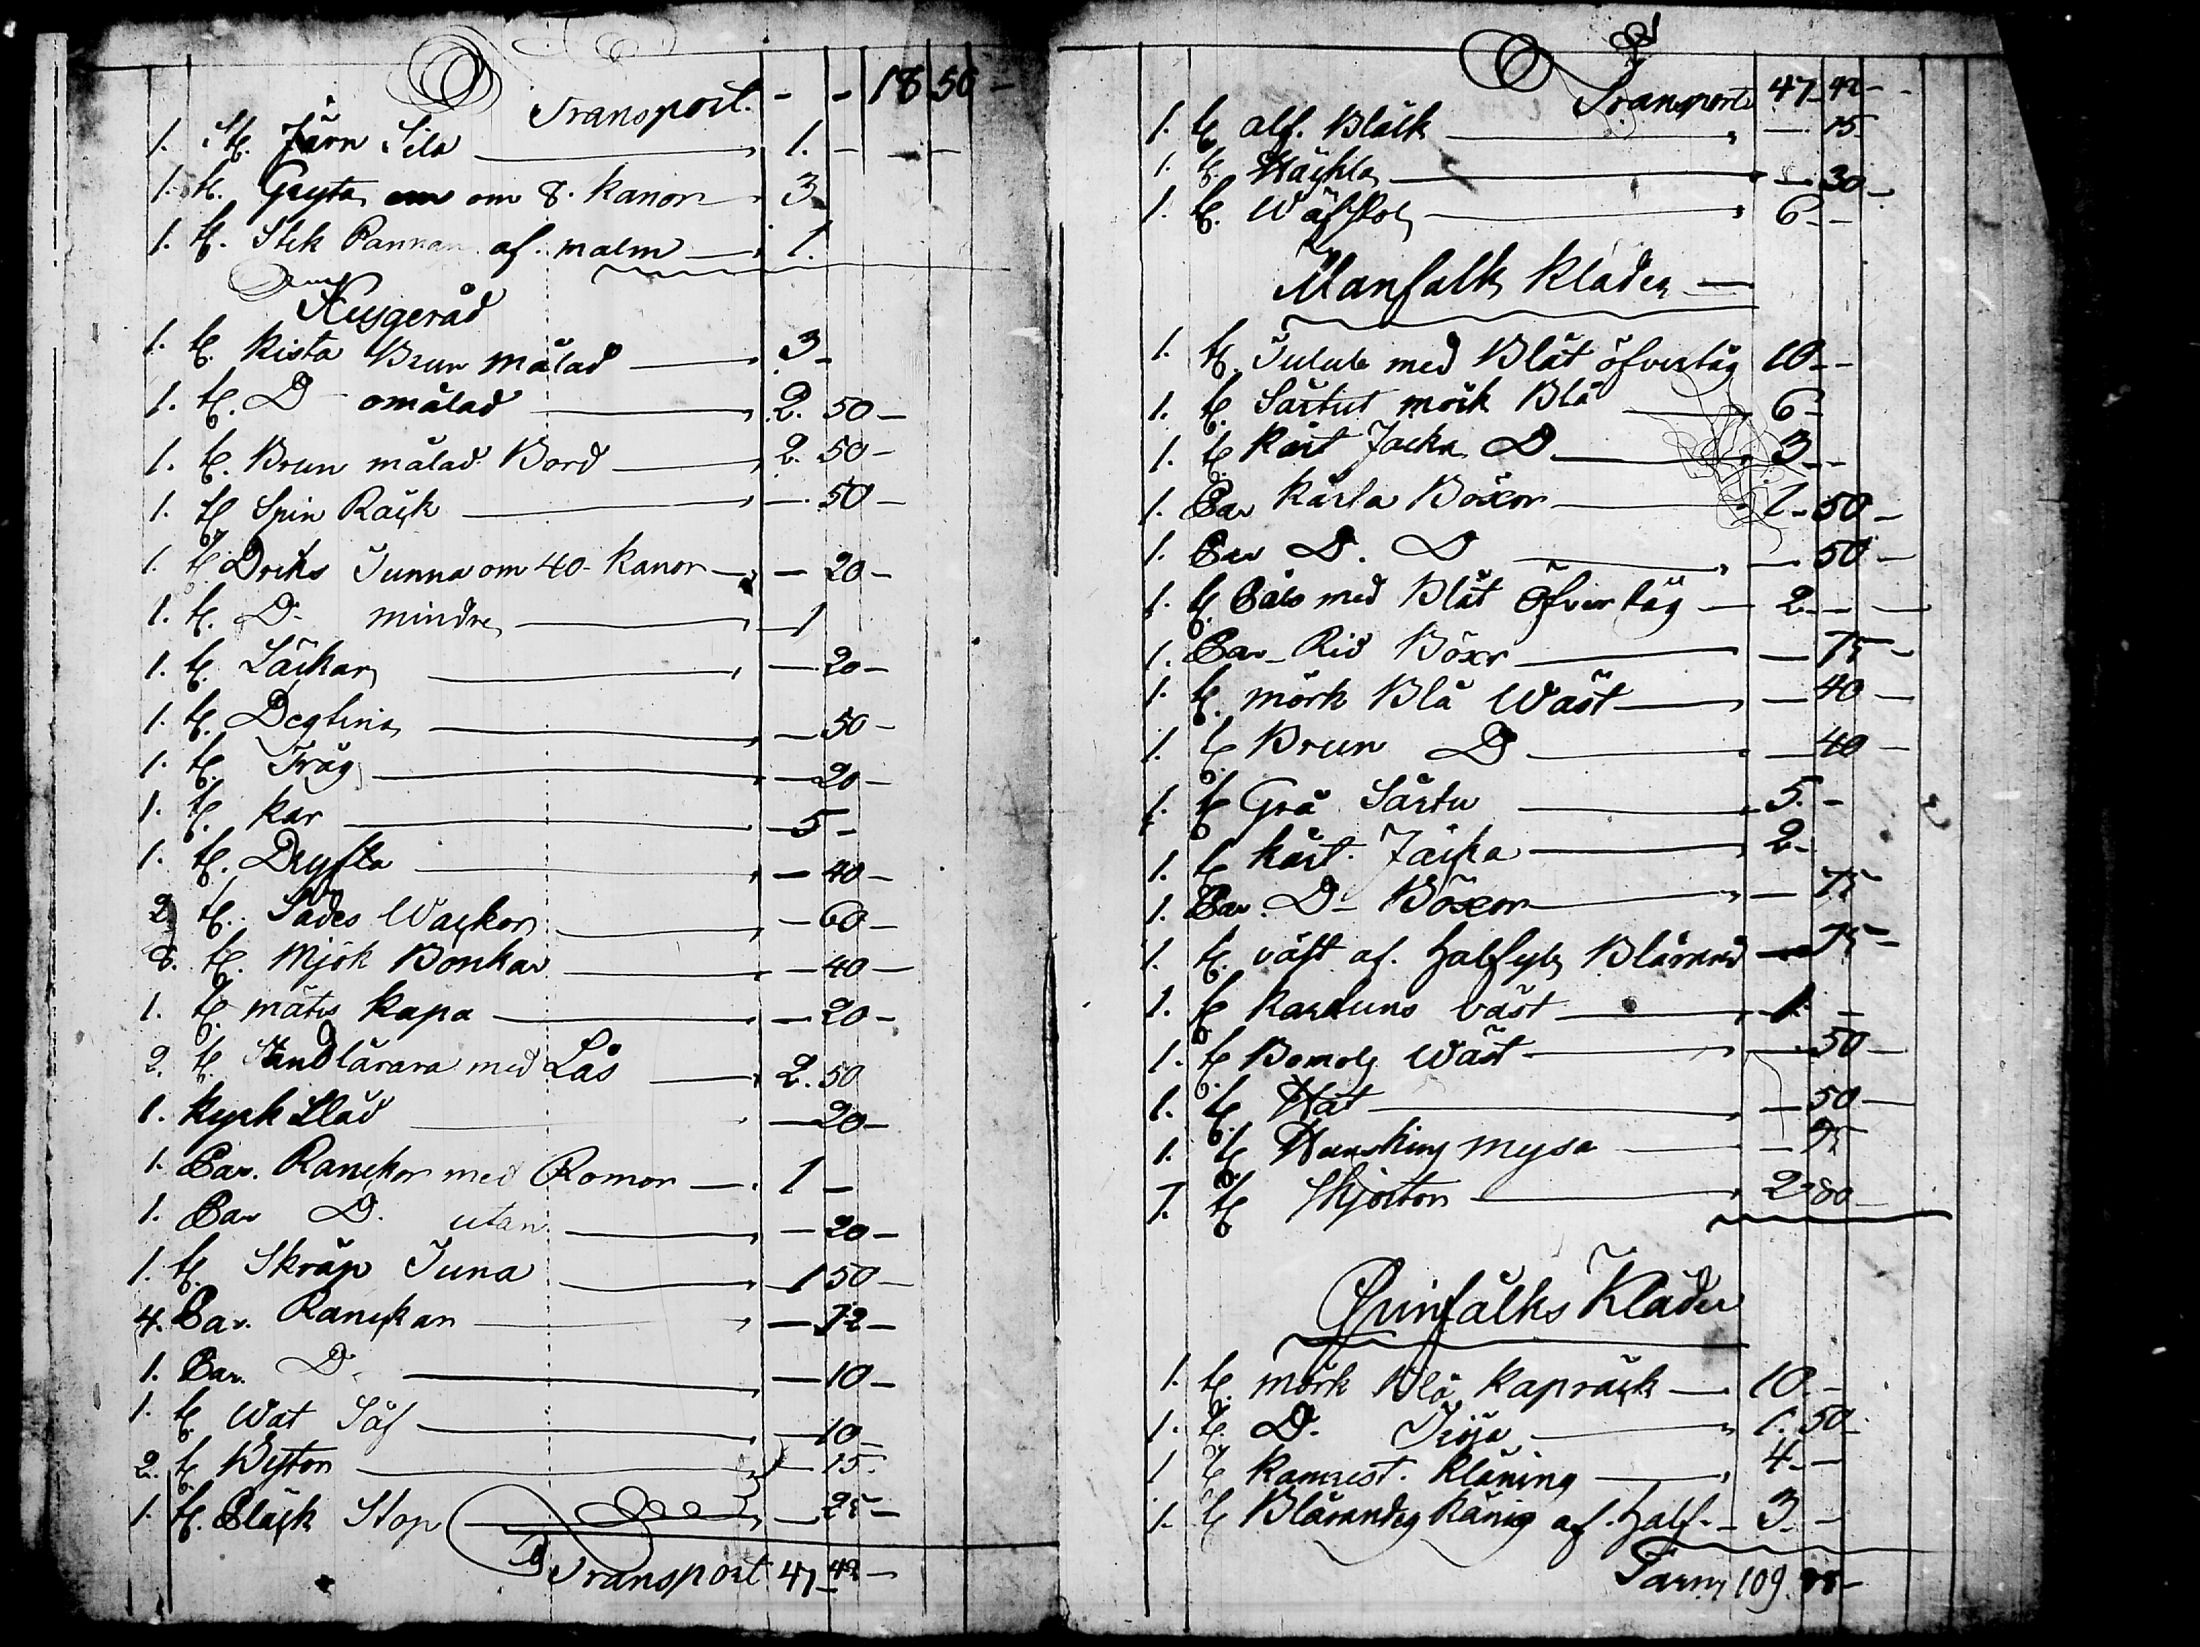 Transport. - - 18 50 -
1. St. Järn Sila 1. - - -
1. st. Gryta om 8. kanor 3
1. st. Stek Pannan af. malm 1.
Husgeråd
1. st. kista Brun målad 3 -
1. st. D - omålad 2. 50 -
1. st. Brun målad Bord 2. 50 -
1. st Spin Räck - 50 -
1. st. Driks Tunna om 40 - kanor - 20 -
1. st. D - mindre 1
1. st. Läckar - 20 -
1. st. Degtina - 50 -
1. st. Tråg - 20 -
1. st. kar - 5 -
1. st. Dryfta - 40 -
2 st. Sädes Wackor - 60 -
8. st. Mjök Bonkar - 40 -
1. st. mätis kapa - 20 -
2. st. Tandlärara med Lås 2. 50
1. kyrk Släd - 20 -
1. Par. Ranckor med Romor 1 -
1. Par D. utan - 20 -
1. st. Skräp Tuna 1 50 -
4. Par. Ranckan - 12 -
1. Par. D. - 10 -
1. st. Wat Såf - 10 -
2. st. Byttor - 15 -
1. st. Bläck Stop - 25 -
Transport 47 - 42 -
Transport 47 - 42 - -
1. st. alf. Bläck - 15
1. st. Häckla - 30 -
1. st. Wäfskol 6 - -
Manfolk kläder
1. st. Tulub med Blåt öfvertåg 10 - -
1. st. Särtut mörk Blå 6 -
1. st. kårt Jacka D 3 - -
1. Par kårta Böxor 1 - 50 -
1. Par D. D - 50 -
1. st. Päls med Blåt Öfvertåg 2 - -
1. Par - Rid Böxr - 75 -
1. st. mörk Blå Wäst - 40 -
1. st. Brun D - 40 -
1. st. Grå Särtu 5 - -
1. st. kårt. Jäcka 2 -
1. Par. D - Böxor - 75
1. st. väst af. halfyle Blårand - 75 -
1. st. karduns väst 1 -
1. st. Bomols Wäst - 50 -
1. st. Hat - 50 -
1. st. Hansking mysa - 25
7. st. Skjortor 2 80 -
Qvinfålks Kläder
1. st. mörk Blå kapräck 10 - -
1. st. D. Tröja 1. 50 -
1 st. kamrest. kläning 4 - -
1. st. Blårandig käning af. half. 3 - -
Sam 109.